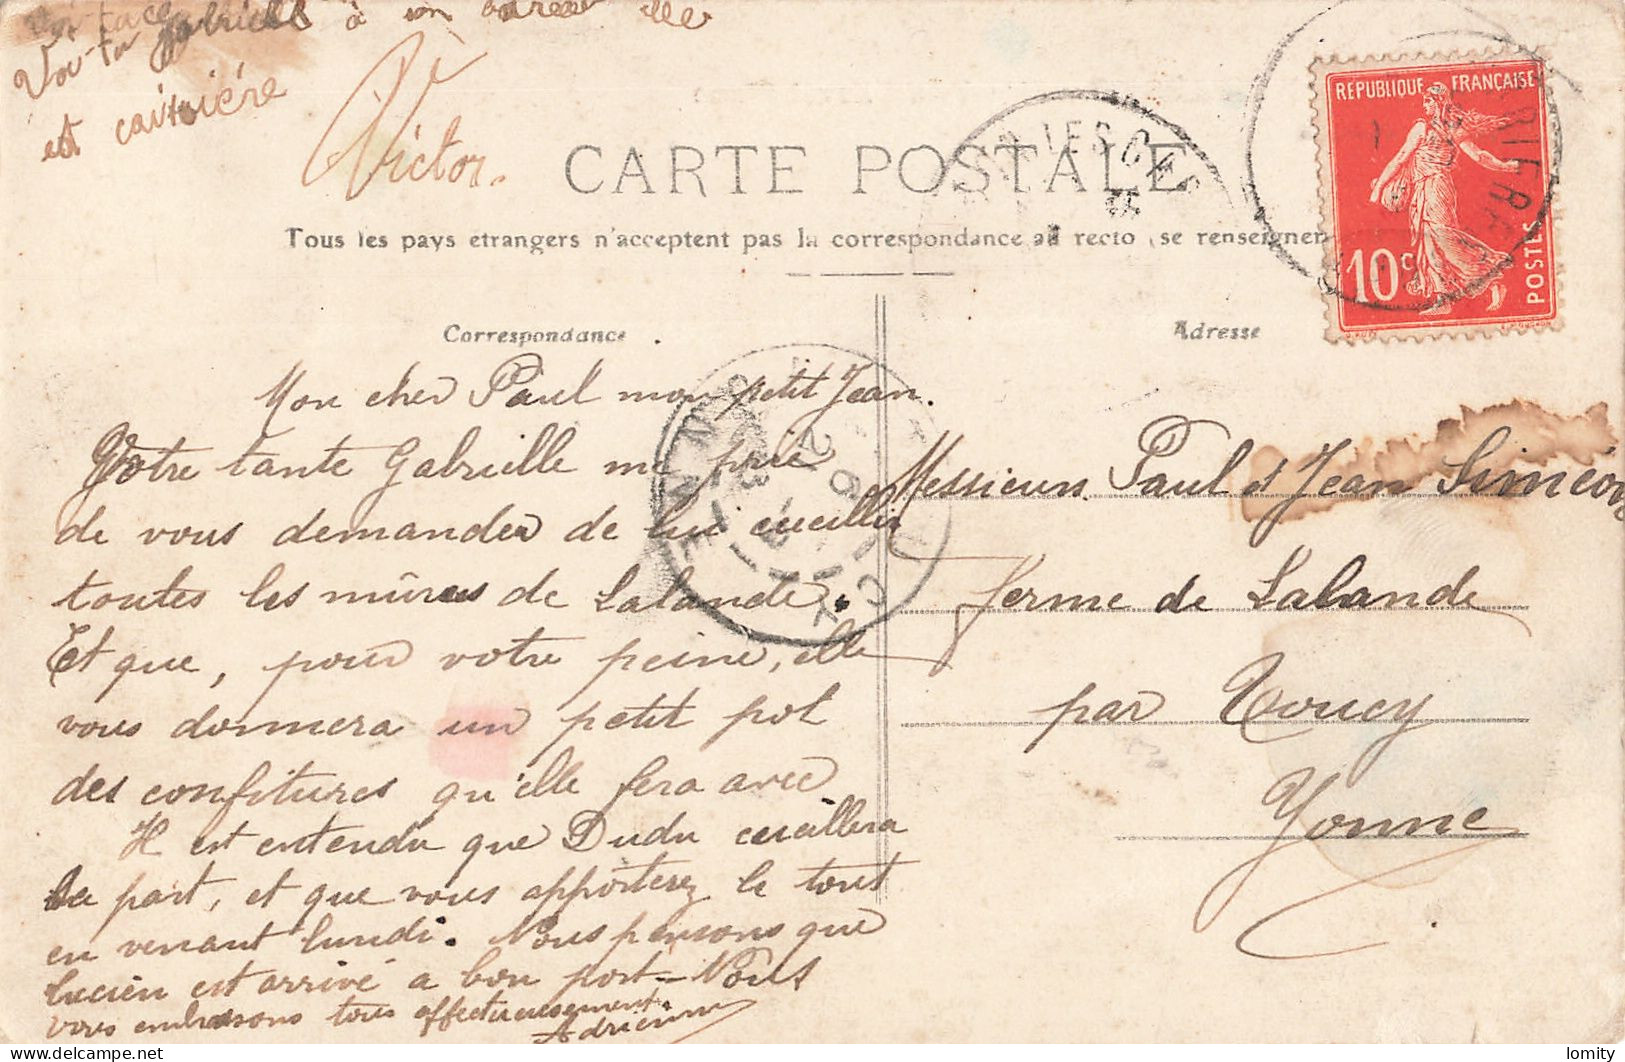 Voi-tu Gabrielle à son adresse elle
est caissière
Victor.
CARTE POSTALE
Tous les pays etrangers n'acceptent pas la correspondance au recto (se renseigner
REPUBLIQUE FRANÇAISE
10c
POSTES
Correspondance
Adresse
Mon cher Paul mon petit Jean.
Votre tante Gabrielle me prie
de vous demander de lui cueillir
toutes les mûres de Lalande.
Et que, pour votre peine, elle
vous donnera un petit pot
des confitures qu'elle fera avec
Il est entendu que Dudu cueillera
sa part, et que vous apporterez le tout
en venant lundi. Nous pensons que
Lucien est arrivé a bon port - Nous
vous embrassons tous affectueusement.
Adrienne
Messieurs Paul et Jean Siméon
ferme de Lalande
par Toucy
Yonne
lomity